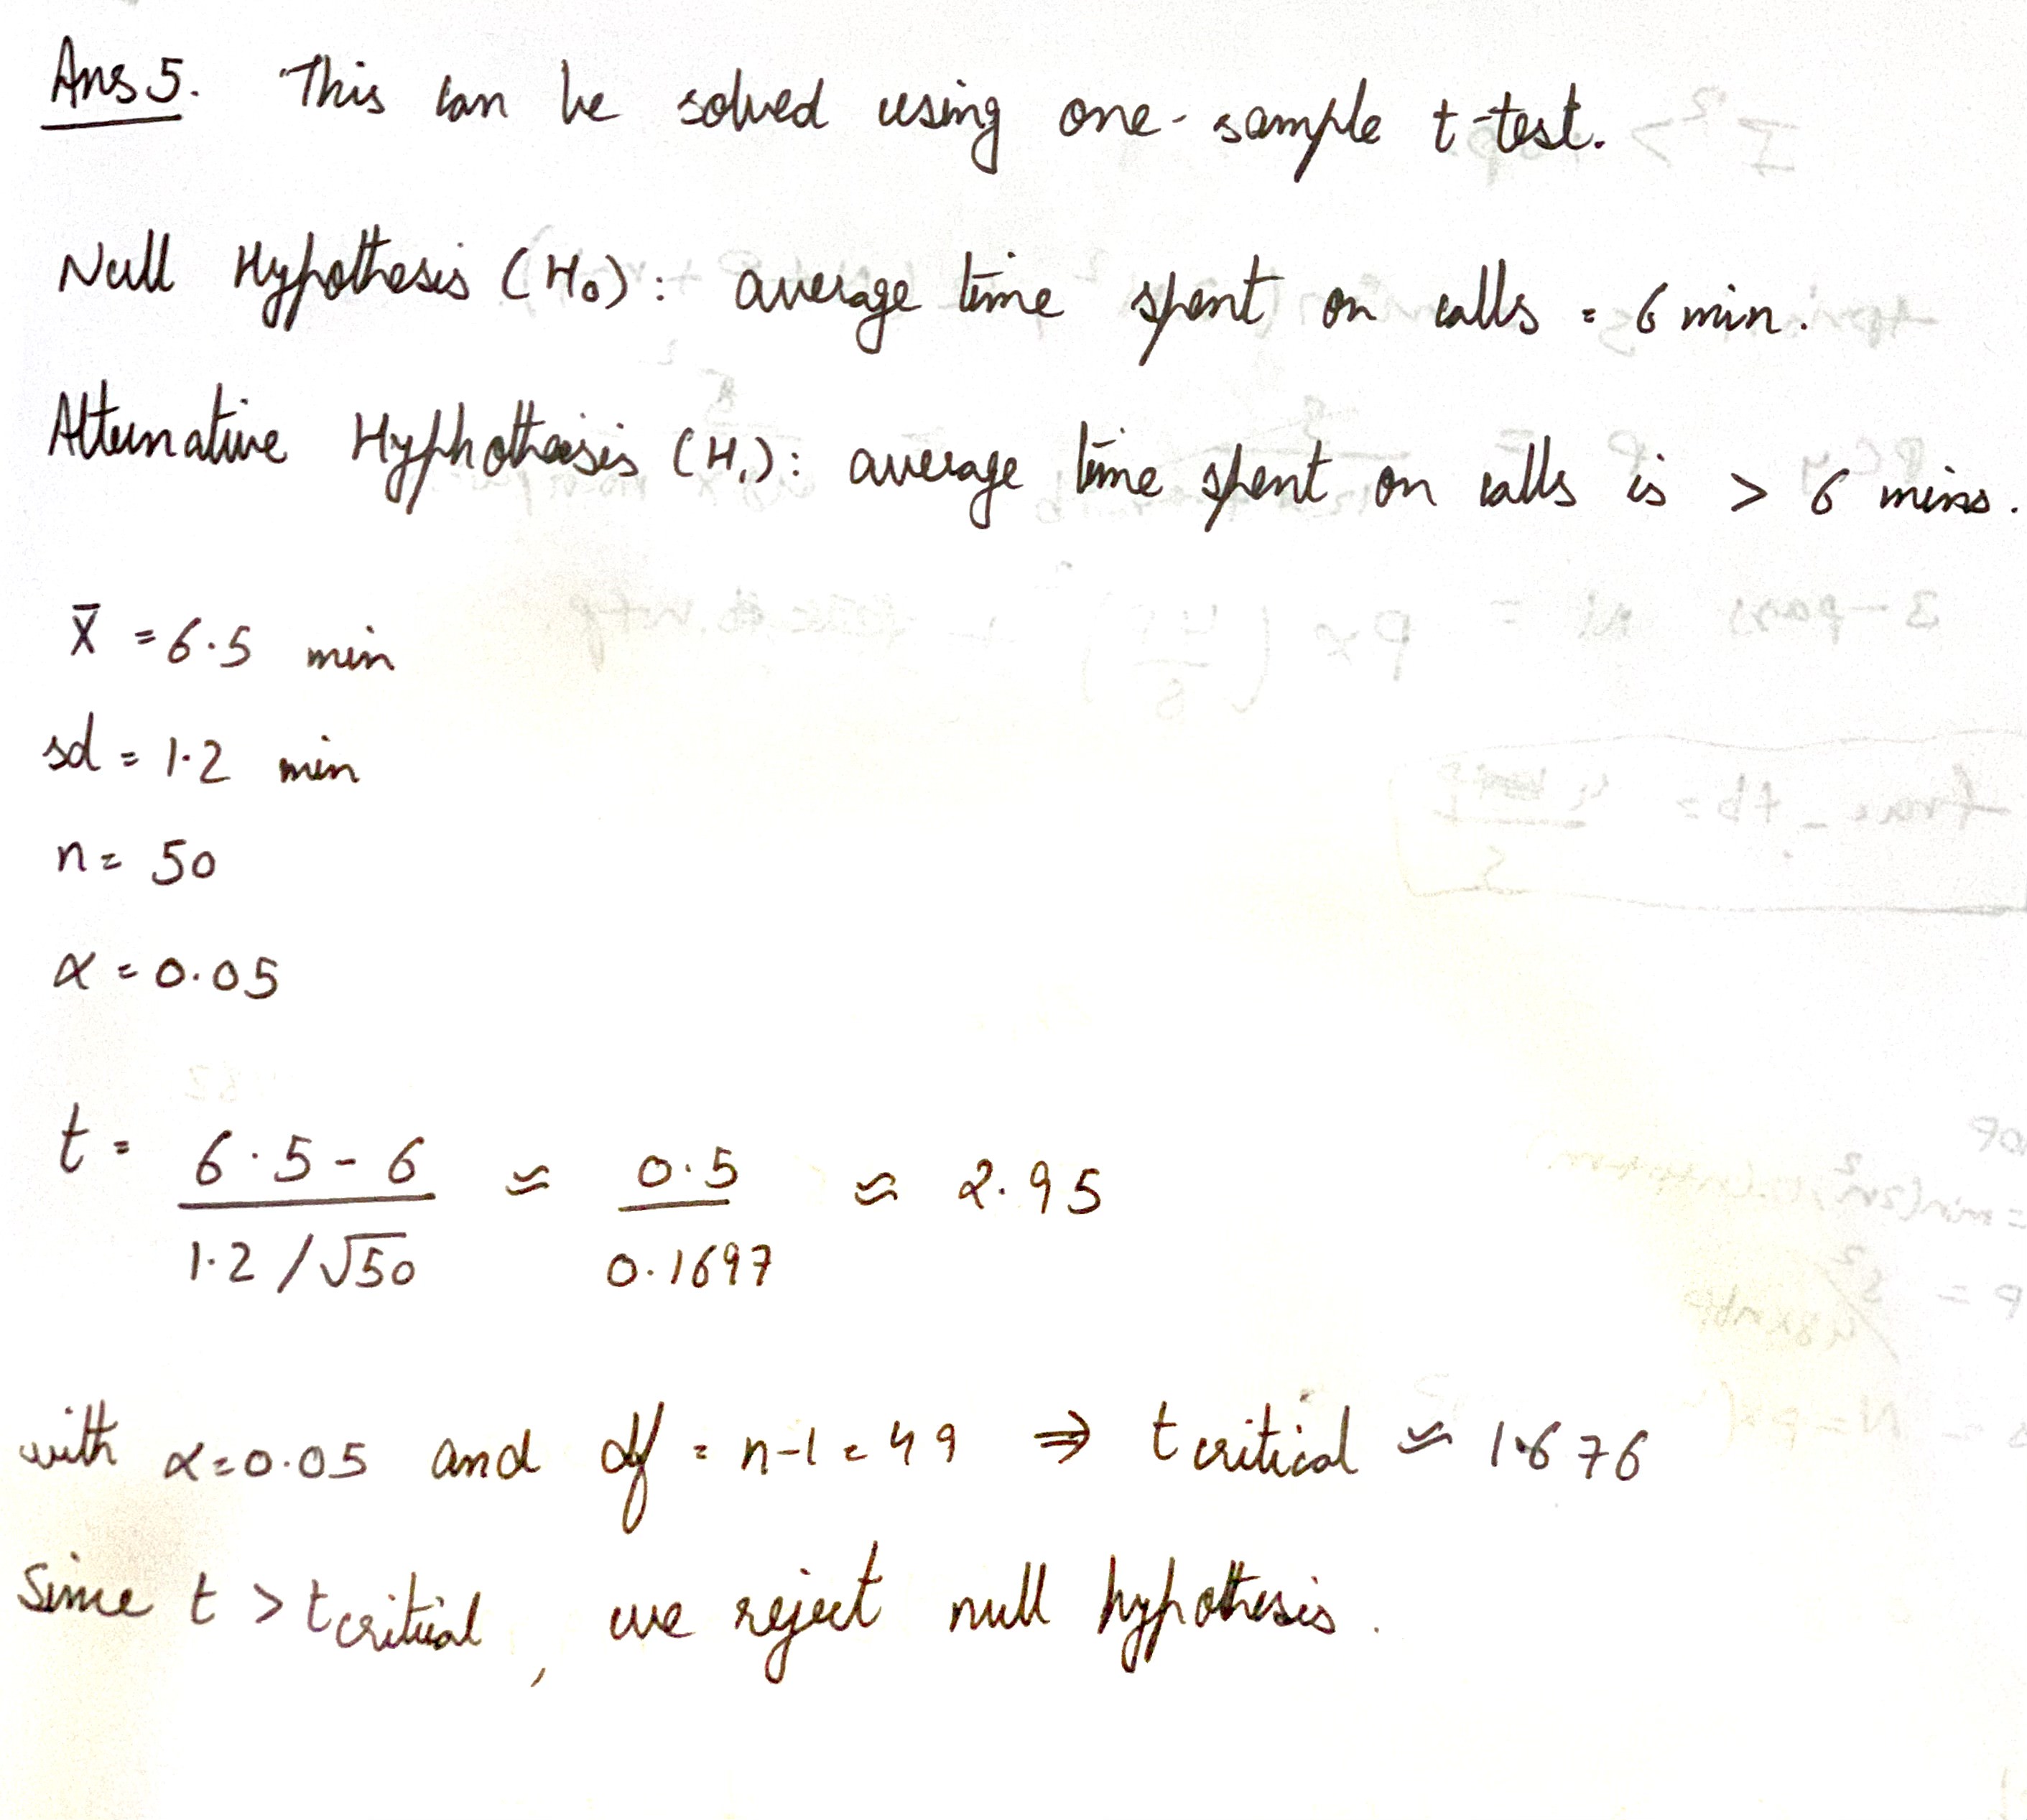 Ans 5. This can be solved using one-sample t-test.
Null Hypothesis (H₀): average time spent on calls = 6 min.
Alternative Hyphothesis (H₁): average time spent on calls is > 6 mins.
x̄ = 6.5 min
sd = 1.2 min
n = 50
α = 0.05
t = (6.5 - 6) / (1.2 / √50) ≈ 0.5 / 0.1697 ≈ 2.95
with α = 0.05 and df = n-1 = 49 ⇒ t critical ≈ 1.676
Since t > t critical, we reject null hypothesis.